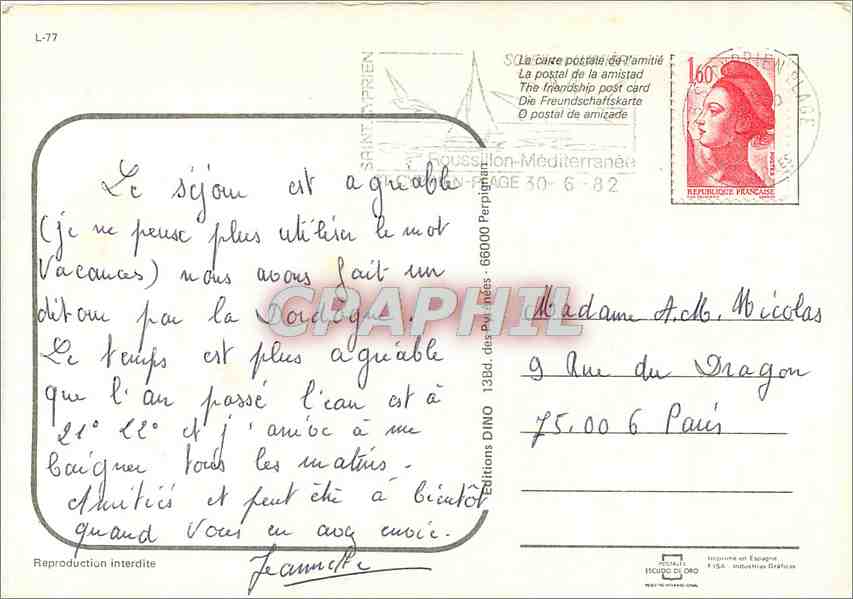 L-77
SAINT CYPRIEN
La carte postale de l'amitié
La postal de la amistad
The friendship post card
Die Freundschaftskarte
O postal de amizade
Roussillon-Méditerranée
CYPRIEN-PLAGE 30-6-82
CYPRIEN PLAGE
1,60
POSTES
REPUBLIQUE FRANÇAISE
Le séjour est agréable
(je ne pense plus utiliser le mot
Vacances) nous avons fait un
détour par la Dordogne.
Le temps est plus agréable
que l'an passé l'eau est à
21° 22° et j'arrive à me
baigner tous les matins.
Amitiés et peut être à bientôt
quand vous en avez envie.
Jeannette
CPAPHIL
Editions DINO 13Bd. des Pyrénées - 66000 Perpignan
Madame A.M. Nicolas
9 Rue du Dragon
75.006 Paris
Reproduction interdite
POSTALES
ESCUDO DE ORO
Imprimé en Espagne
FISA - Industrias Gráficas